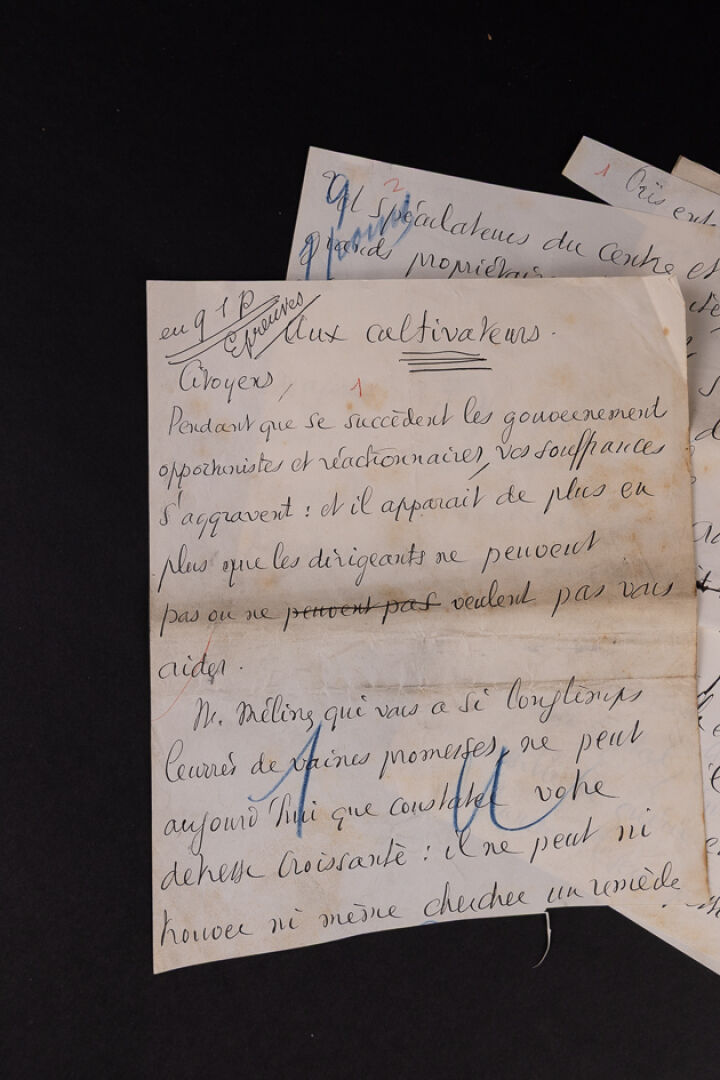 1
Oris ent
2
9
spéculateurs du centre et
grands propriétair
en 9 1 p
Epreuves
Aux cultivateurs.
Citoyens,
1
Pendant que se succèdent les gouvernement
opportunistes et réactionnaires, vos souffrances
s'aggravent : et il apparaît de plus en
plus que les dirigeants ne peuvent
pas ou ne peuvent pas veulent pas vous
aider.
M. Méline qui vous a si longtemps
leurrés de vaines promesses, ne peut
aujourd'hui que constater votre
detresse croissante : il ne peut ni
trouver ni même chercher un remède